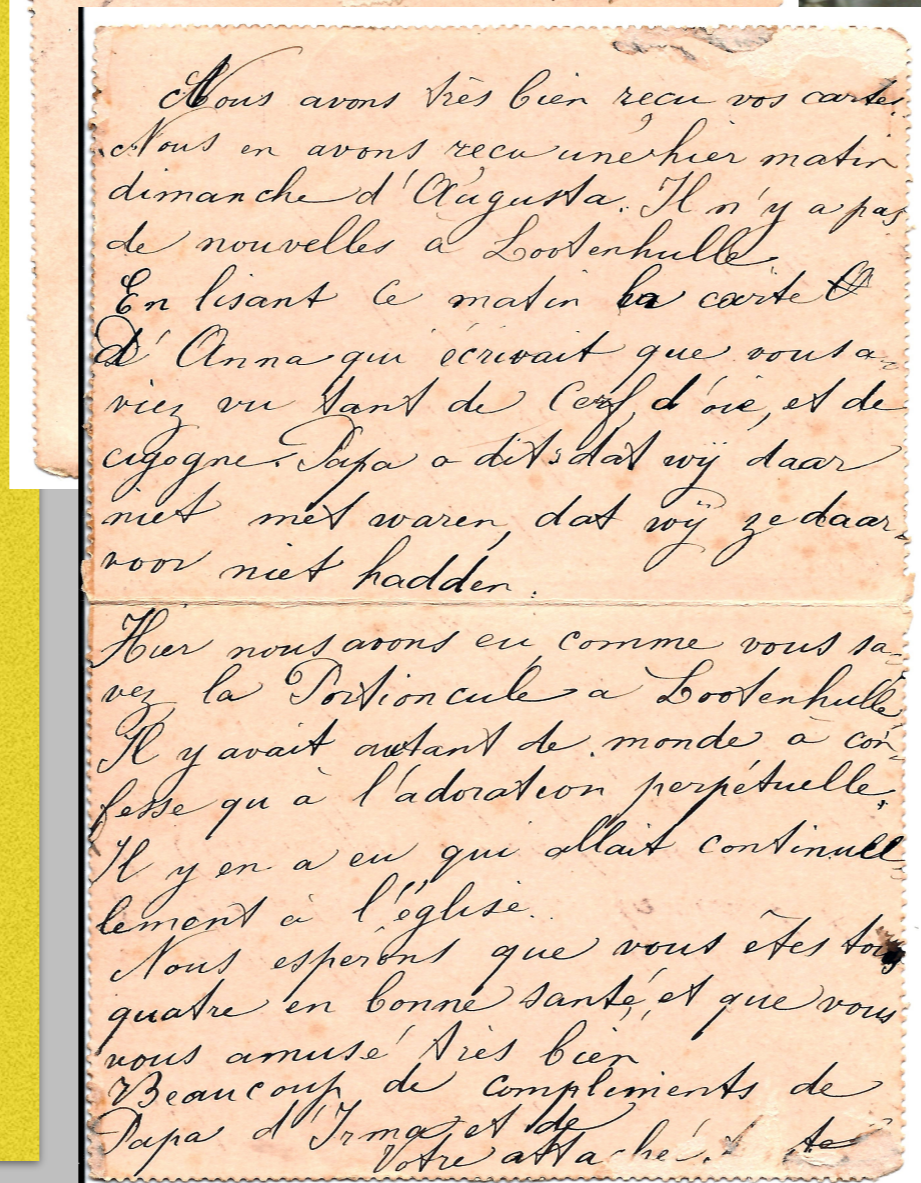 Nous avons très bien reçu vos cartes.
Nous en avons reçu une hier matin
dimanche d'Augusta. Il n'y a pas
de nouvelles a Lootenhulle.
En lisant ce matin la carte
d'Anna qui écrivait que vous a-
viez vu tant de Cerf, d'oie, et de
cigogne. Papa a dit: dat wÿ daar
niet met waren, dat wÿ ze daar-
voor niet hadden.
Hier nous avons eu, comme vous sa-
vez la Portioncule a Lootenhulle
Il y avait autant de monde à con-
fesse qu'à l'adoration perpétuelle.
Il y en a eu qui allait continuel-
lement à l'église.
Nous espérons que vous êtes tous
quatre en bonne santé, et que vous
vous amusé très bien
Beaucoup de compliments de
Papa d'Irma et de
Votre attaché.